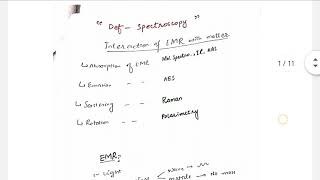 " Def - Spectroscopy "
Interaction of EMR with matter
↳ Absorption of EMR Abs Spectro, IR, AAS
↳ Emission " - AES
↳ Scattering " - Raman
↳ Rotation " - Polarimetry
1 / 11
EMR:
- Light
Wave →
matter → No mass